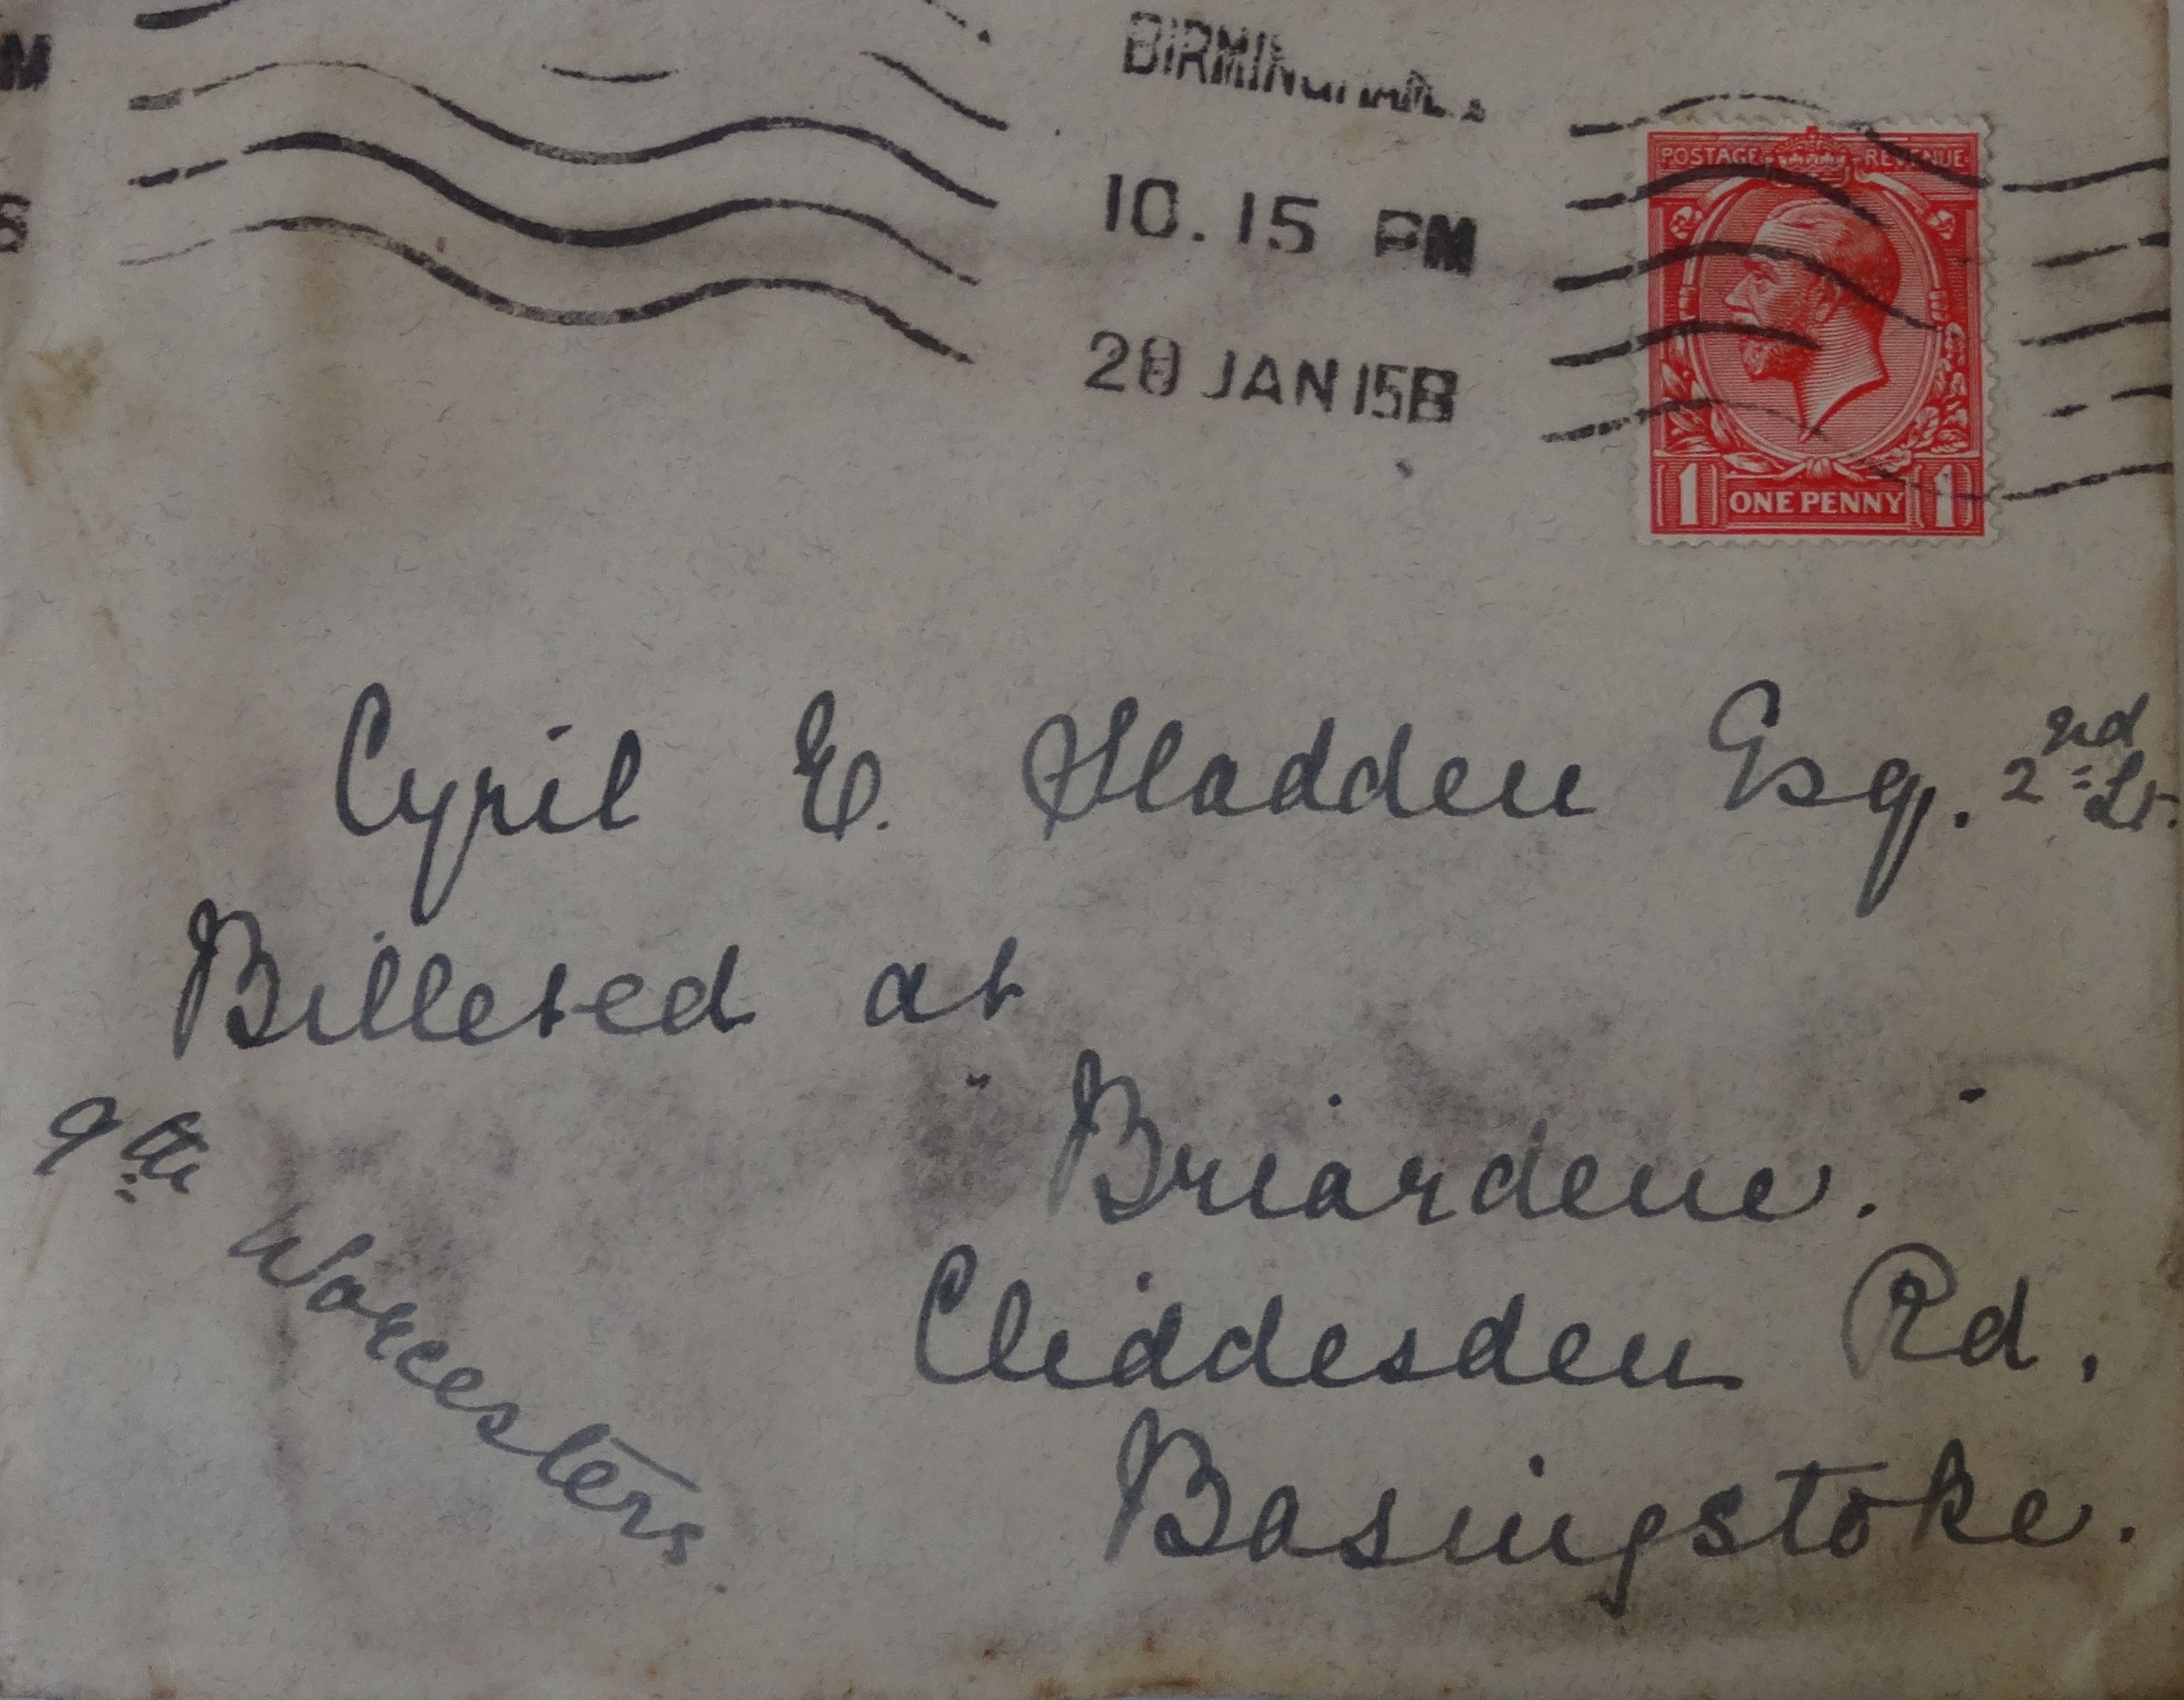 BIRMINGHAM
10.15 PM
28 JAN 15B
POSTAGE REVENUE
1 ONE PENNY 1
Cyril E. Sladden Esq. 2nd Lt.
Billeted at
"Briardene".
9th Worcesters.
Cliddesden Rd.
Basingstoke.